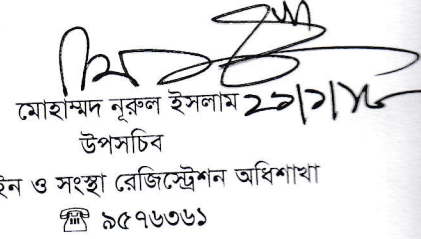 মোহাম্মদ নূরুল ইসলাম
উপসচিব
ইন ও সংস্থা রেজিস্ট্রেশন অধিশাখা
☎ ৯৫৭৬৩৬১